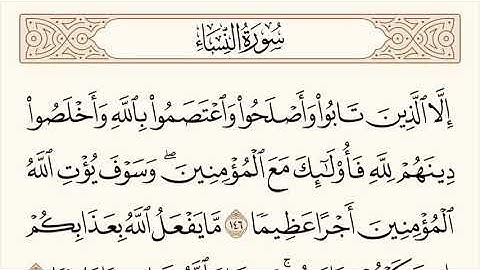 سُورَةُ النِّسَاءِ
إِلَّا ٱلَّذِينَ تَابُوا۟ وَأَصْلَحُوا۟ وَٱعْتَصَمُوا۟ بِٱللَّهِ وَأَخْلَصُوا۟
دِينَهُمْ لِلَّهِ فَأُو۟لَٰٓئِكَ مَعَ ٱلْمُؤْمِنِينَ ۖ وَسَوْفَ يُؤْتِ ٱللَّهُ
ٱلْمُؤْمِنِينَ أَجْرًا عَظِيمًا ١٤٦ مَّا يَفْعَلُ ٱللَّهُ بِعَذَابِكُمْ